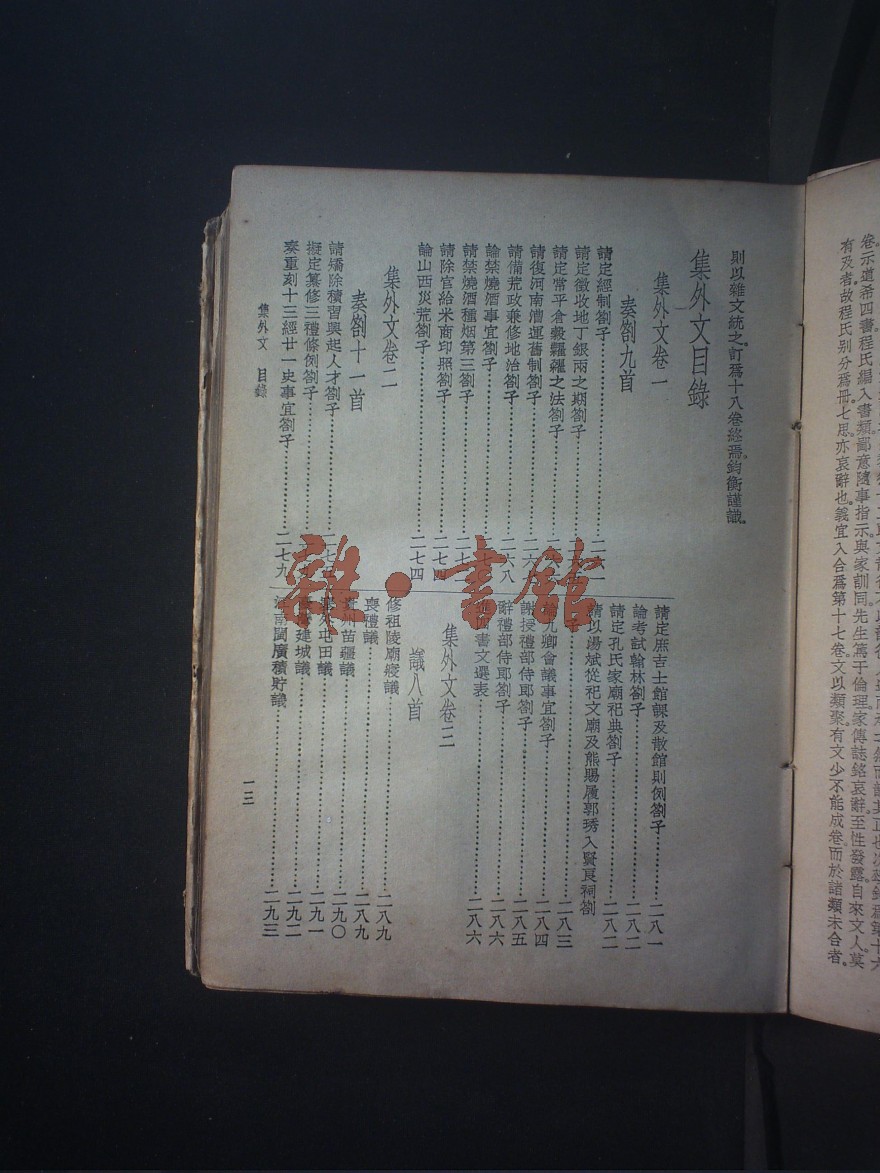 有及者故程氏別分爲冊七思亦哀辭也義宜入合爲第十七卷文以類聚有文少不能成卷而於諸類未合者
則以雜文統之訂爲十八卷終焉鈞衡謹識
集外文目錄
集外文卷一
奏劄九首
請定經制劄子
請定徵收地丁銀兩之期劄子
請定常平倉穀糶糴之法劄子
請復河南漕運舊制劄子
請備荒政兼修地治劄子……二六八
論禁燒酒事宜劄子
請禁燒酒種烟第三劄子
請除官給米商印照劄子……二七四
論山西災荒劄子……二七四
集外文卷二
奏劄十一首
請矯除積習興起人才劄子
擬定纂修三禮條例劄子
奏重刻十三經廿一史事宜劄子……二七九
請定庶吉士館課及散館則例劄子……二八一
論考試翰林劄子……二八二
請定孔氏家廟祀典劄子……二八二
請以湯斌從祀文廟及熊賜履郭琇入賢良祠劄
子……二八三
九卿會議事宜劄子……二八四
謝授禮部侍郎劄子……二八五
辭禮部侍郎劄子……二八六
進四書文選表……二八六
集外文卷三
議八首
修祖陵廟寢議……二八九
喪禮議……二八九
貴州苗疆議……二九〇
塞外屯田議……二九一
建城議……二九二
渾河南閩廣積貯議……二九三
集外文　目錄
一三
雜·書館